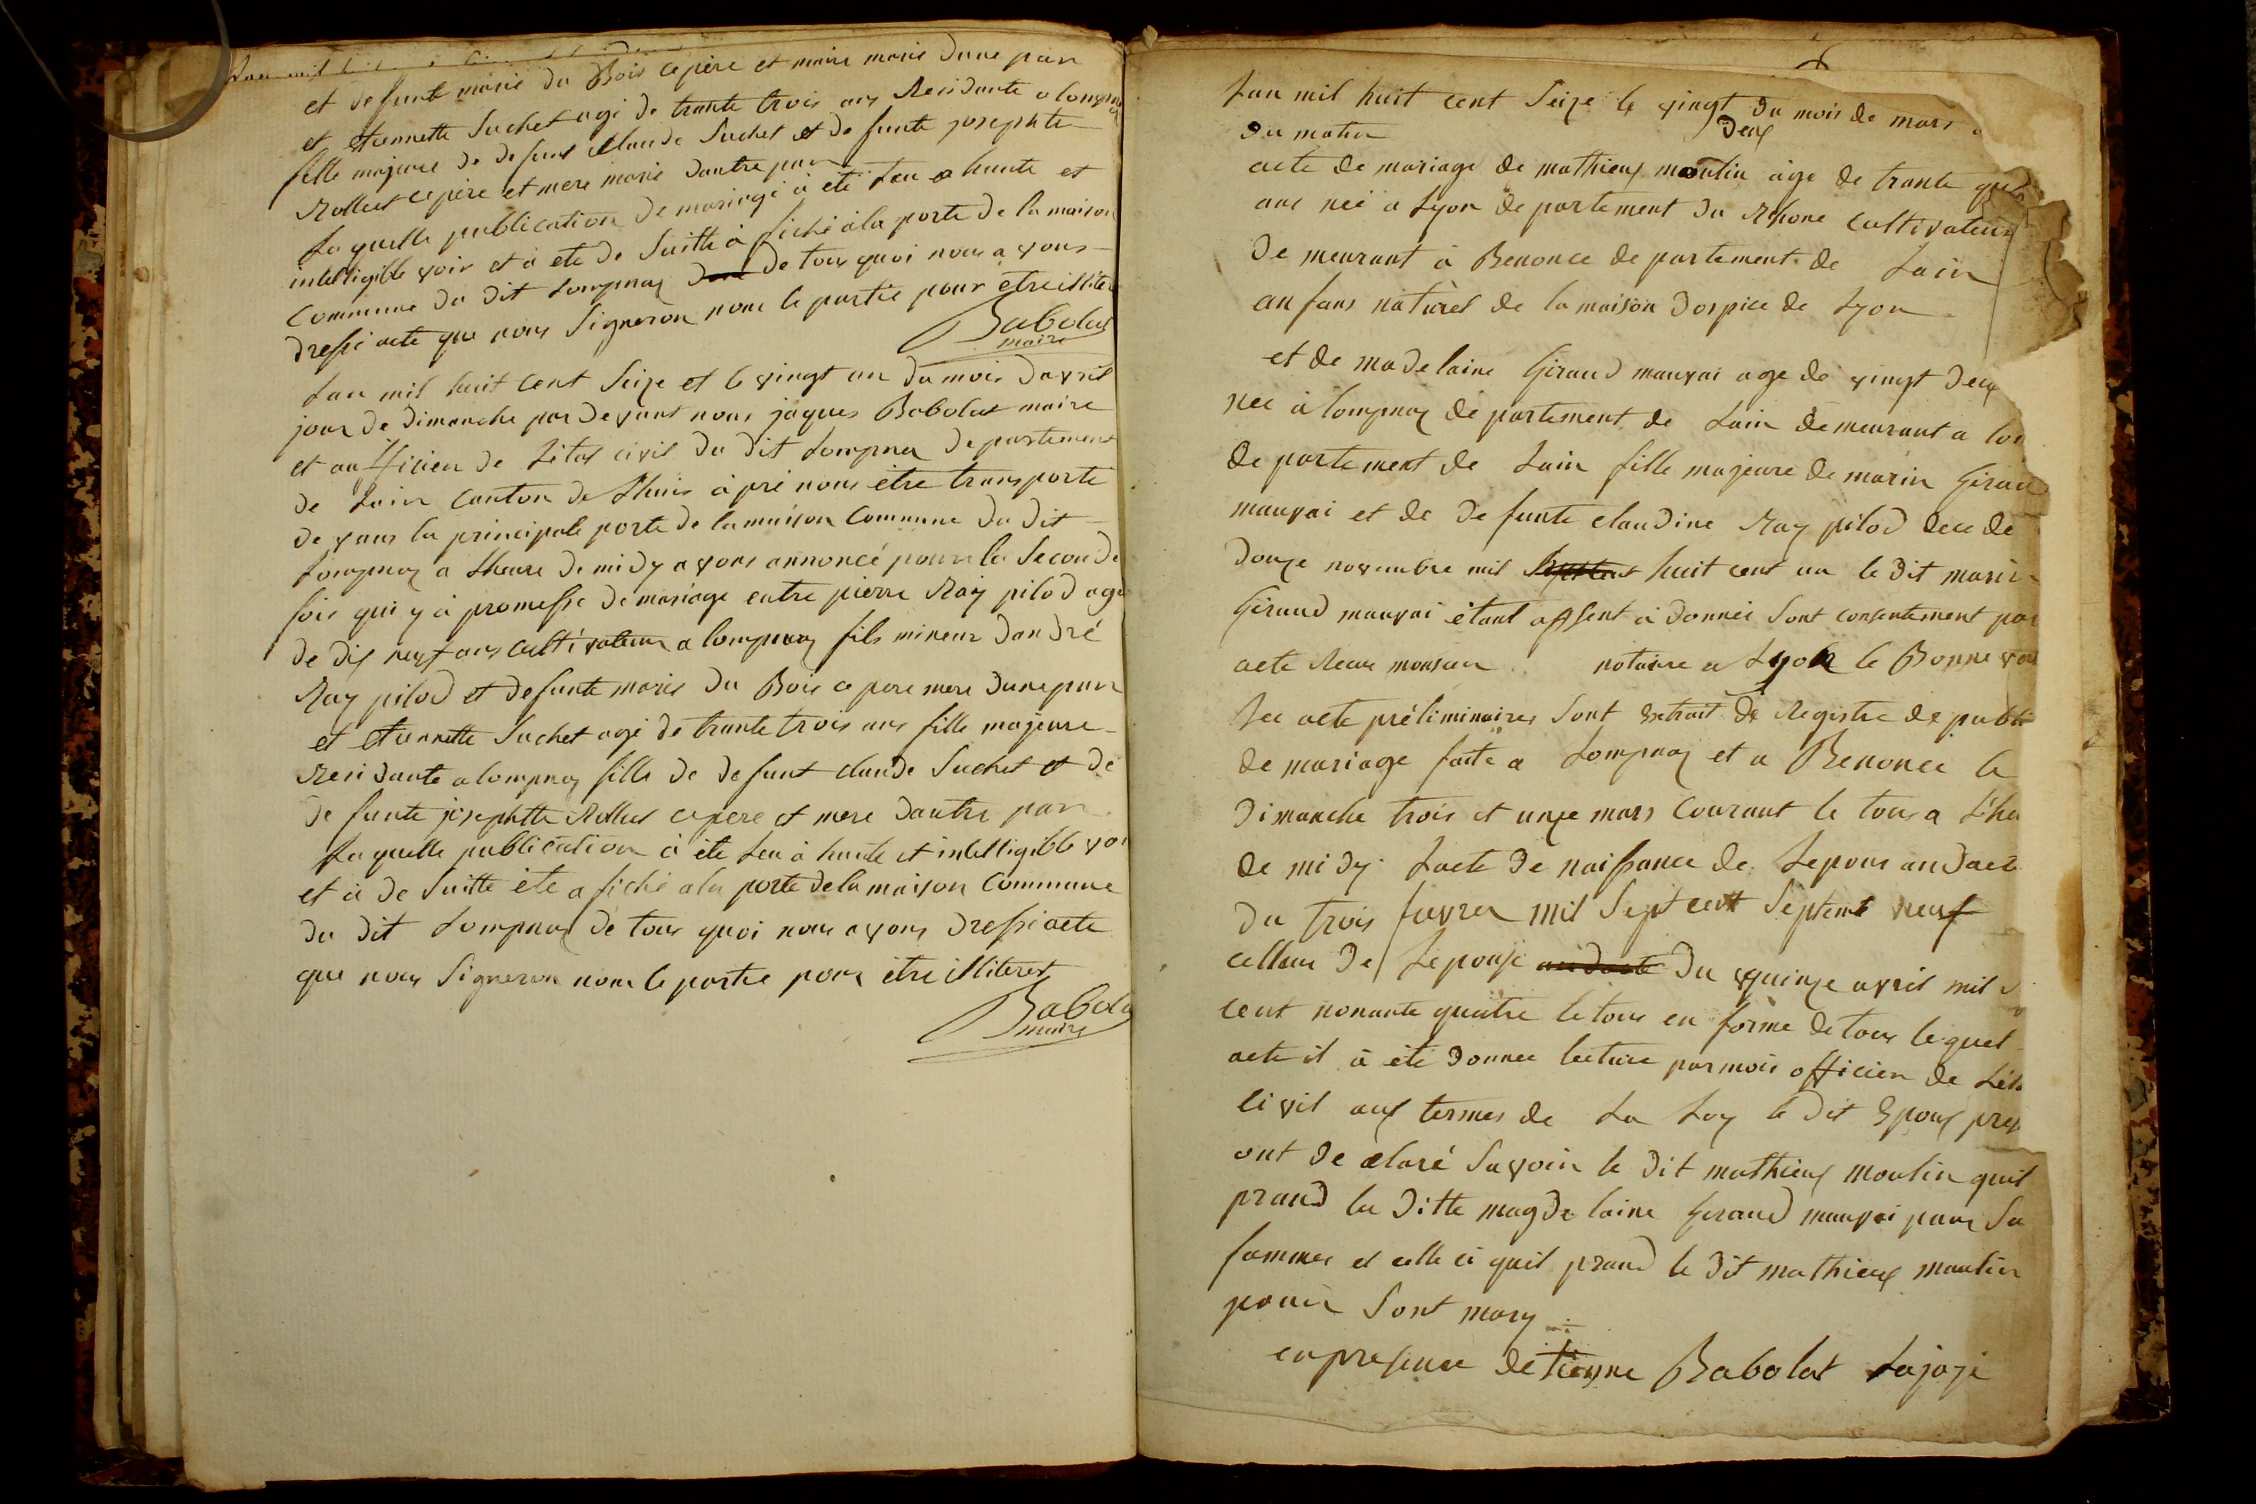 et defunte marie du Bois ce père et mère marié dune part
et etiennette Suchet agé de trante trois ans Residante a lompnaz
fille majeure de defunt claude Suchet et de funte josephte
Rollet ce père et mere marié dautre part
la quelle publication de mariage à ête leu a haute et
intelligible voix et à ete de suitte à fiché à la porte de la maison
commune du dit Lompnaz de tous quoi nous avons
dressé acte que nous Signeron non le partie pour être illiter
Babolat
maire
Lan mil huit cent Seize et le vingt un du mois davril
jour de dimanche par devant nous jaques Babolat maire
et au fficier de Létat civil du dit Lompnaz departement
de Lain canton de Lhuis à pré nous être transporte
de vans la principale porte de la maison Commune du dit
Lompnaz a Lheure de midy avons annoncé pour la Seconde
fois qui y à promesse de mariage entre pierre Ray pilod agé
de dix neuf ans cultivateur a lompnaz fils mineur dandré
Ray pilod et defunte marie du Bois ce pere mere dune part
et etiennette Suchet agé de trante trois ans fille majeure
Residante a lompnaz fille de defunt claude Suchet et de
de funte josephtte Rollet ce pere et mere dautre part
La quelle publication à ête leu à haute et intelligible voi
et à de suitte ête a fiché a la porte de la maison Commune
du dit Lompnaz de tous quoi nous avons dressé acte
que nous Signeron non le partie pour être illiteret
Babola
maire
Lan mil huit cent Seize le vingt du mois de mars a
deux
du matin
acte de mariage de mathieux moulin âge de trante
ans née a Lyon departement du Rhone cultivateur
de meurant à Benonce de partement de Lain
an fans naturel de la maison dospice de Lyon
et de madelaine Giraud mauvai age de vingt deux
née à lompnaz de partement de Lain demeurant a
de partement de Lain fille majeure de marin Girau
mauvai et de de funte claudine Ray pilod decede
douze novembre mil huit cent un le dit marin
Giraud mauvai êtant absent à donnée sont consentement par
acte Recu monsieur notaire a Lyon le Bonne
Lec acte préliminaires sont extrait de Registre de publi
de mariage faite a Lompnaz et a Benonce le
dimanche trois et unze mars courant le tous a Lheu
de midy Lacte de naissance de Lepous
du trois fevrer mil Sept cent Septente neuf
celleur de Lepouse du quinze avril mil
cent nonante quatre le tous en forme de tous lequel
acte il à été donnee lecture par mois officier de Léta
civil aux termes de La Loy le dit Epoux pres
ont de claré Savoir le dit mathieux moulin quil
prand la ditte magdelaine Geraud mauvai pour Sa
fammes et celle ci quil prand le dit mathieux moulin
pour Sont mary
en presence de tienne Babolat Lajoje